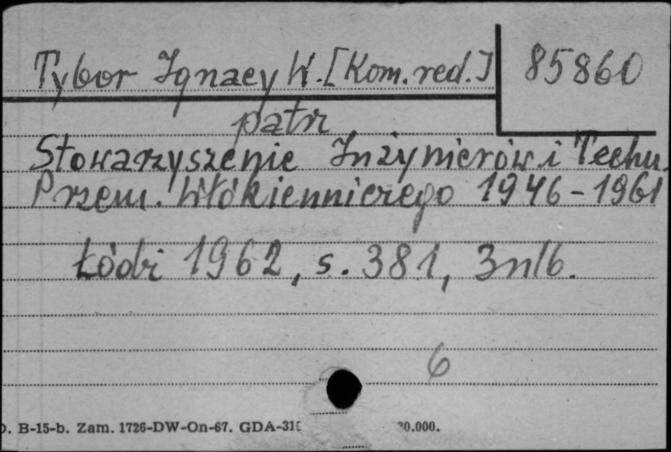 Tybor Ignacy W. [Kom. red.] 85860
patr
Stowarzyszenie Inżynierów i Techn.
Przem. Włókienniczego 1946-1961
Łódź 1962, s. 381, 3 nlb.
6
B-15-b. Zam. 1726-DW-On-67. GDA-31 0.000.